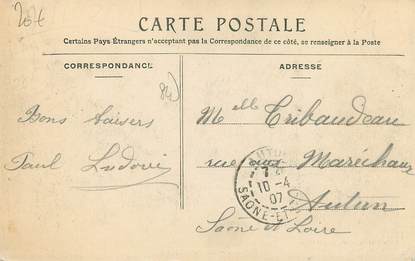 20€
CARTE POSTALE
Certains Pays Étrangers n'acceptant pas la Correspondance de ce côté, se renseigner à la Poste
CORRESPONDANCE
ADRESSE
Bons baisers
Paul
Melle Tribaudeau
rue aux Maréchaux
Autun
Saône et Loire
10-4
07
SAONE-ET